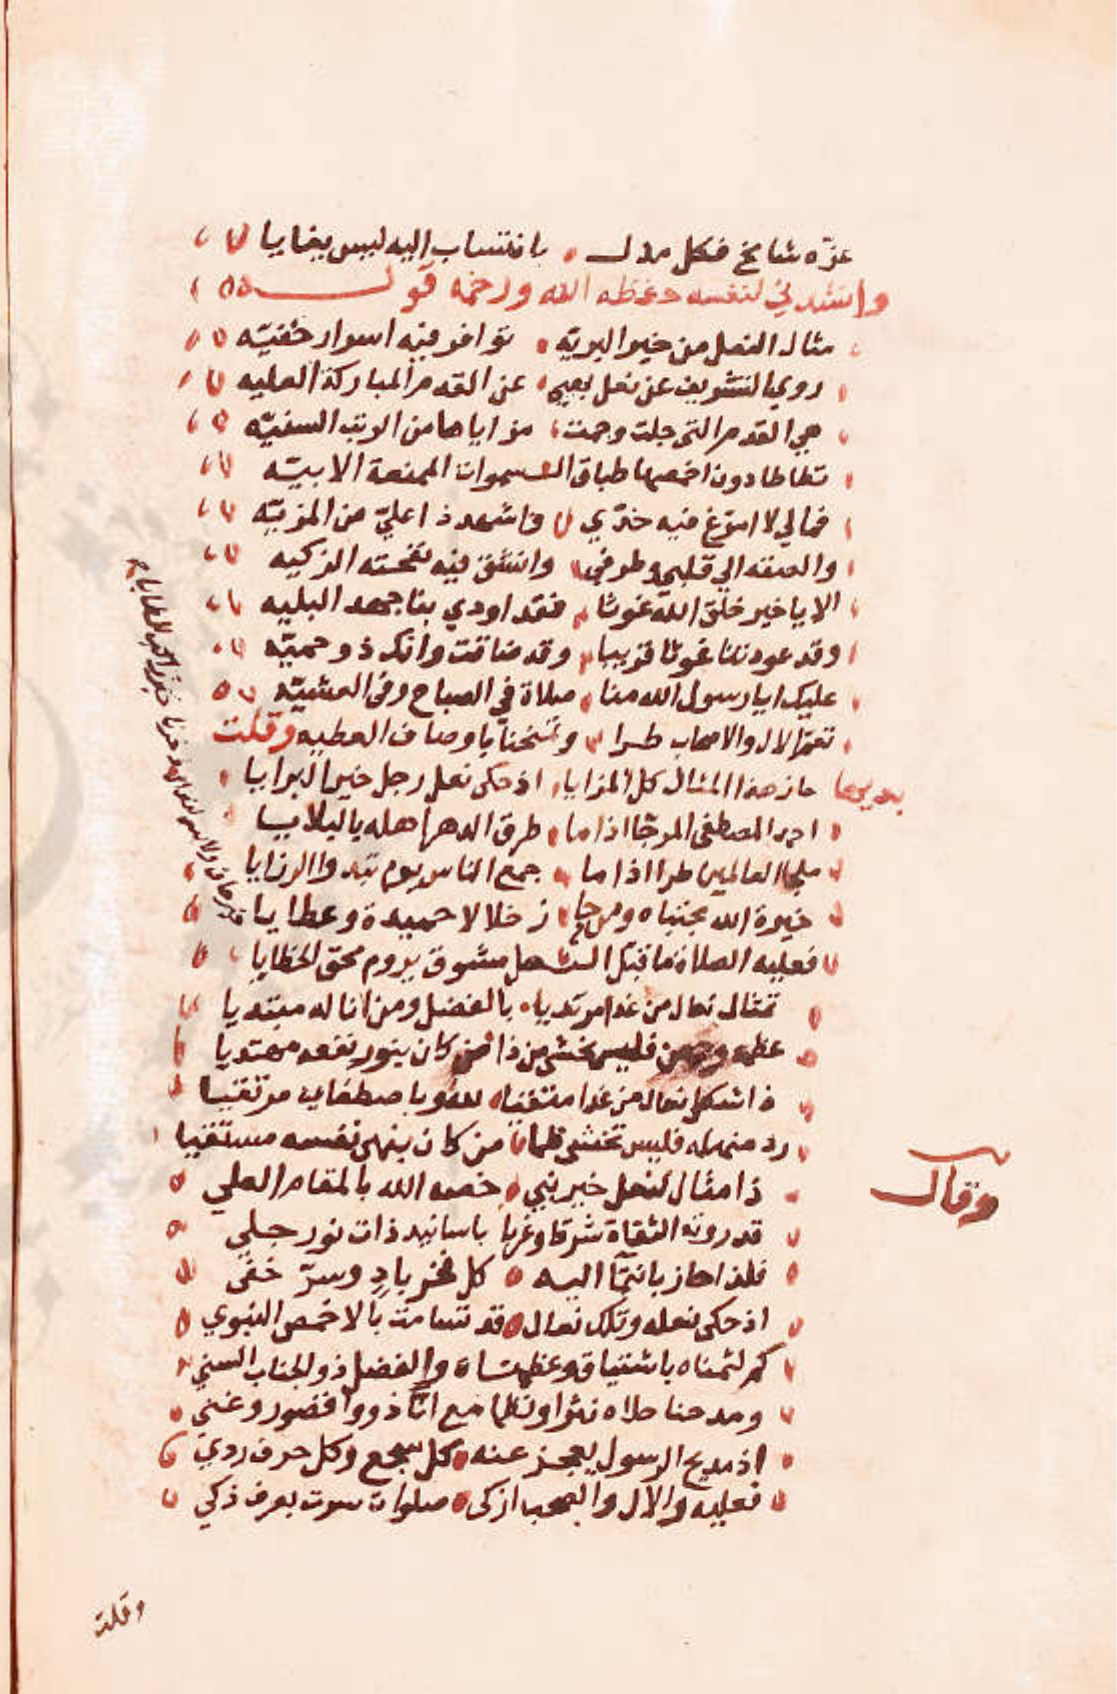 عزّه شامخ فكل مدل بانتساب إليه ليس يضايا
وانشدني لنفسه حفظه الله ورحمه قوله
مثال النعل من خير البرية توافر فيه اسرار خفيّه
روي التشريف عن نعل بعيد عن القدم المباركة العليه
هي القدم التي جلت وحمت مزاياها من الرتب السنيّه
تطاطا دون اخمصها طباق السموات الممنعة الابيّه
فمالي لا امرّغ فيه خدّي واشهد ذا عليّ من المزيّه
والصقه الي قلبي وطرفي وانشق فيه نفحته الزكيه
الا يا خير خلق الله غوثا فقد اودي بنا جهد البليه
وقد عودتنا غوثا قريبا وقد ضاقت وانك ذو حميّه
عليك ايا رسول الله منا صلاة في الصباح وفي العشيّه
تعم الال والاصحاب طرا وتمنحنا باوصاف العطيه وقلت
بديها حاز هذا المثال كل المزايا اذ حكى نعل رجل خير البرايا
احمد المصطفى المرجّا اذا ما طرق الدهر اهله بالبلايا
ملجا العالمين طرا اذا ما جمع الناس يوم تبدوا الرزايا
خيرة الله مجتباه ومن حاز خلالا حميدة وعطايا
فعليه الصلاة ما قبل الشكل مشوق يروم محق الخطايا
تمثال نعال من غدا مرتديا بالفضل ومن اناله مبتديا
عظمه فليس يخشى من ذا من كان بنور نفعه مهتديا
ذا شكل نعال من غدا منتقيا للعفو باصطفاء مرتقيا
رد منهله فليس تخشى ظما من كان ينهى نفسه مستقيا
وقال
ذا مثال لنعل خير نبي خصه الله بالمقام العلي
قد روته الثقاة شرقا وغربا باسانيد ذات نور جلي
فلذا حاز بانتمآ اليه كل فخر بادٍ وسرّ خفي
اذ حكى نعله وتلك نعال قد تسامت بالاخمص النبوي
كم لثمناه باشتياق وعظمناه والفضل ذو الجناب السني
ومدحنا حلاه نثرا ونظما مع انّا ذووا قصور وغني
اذ مديح الرسول يعجز عنه كل سجع وكل حرف روي
فعليه والال والصحب ازكى صلوات سرت بعرف ذكي
وقلت